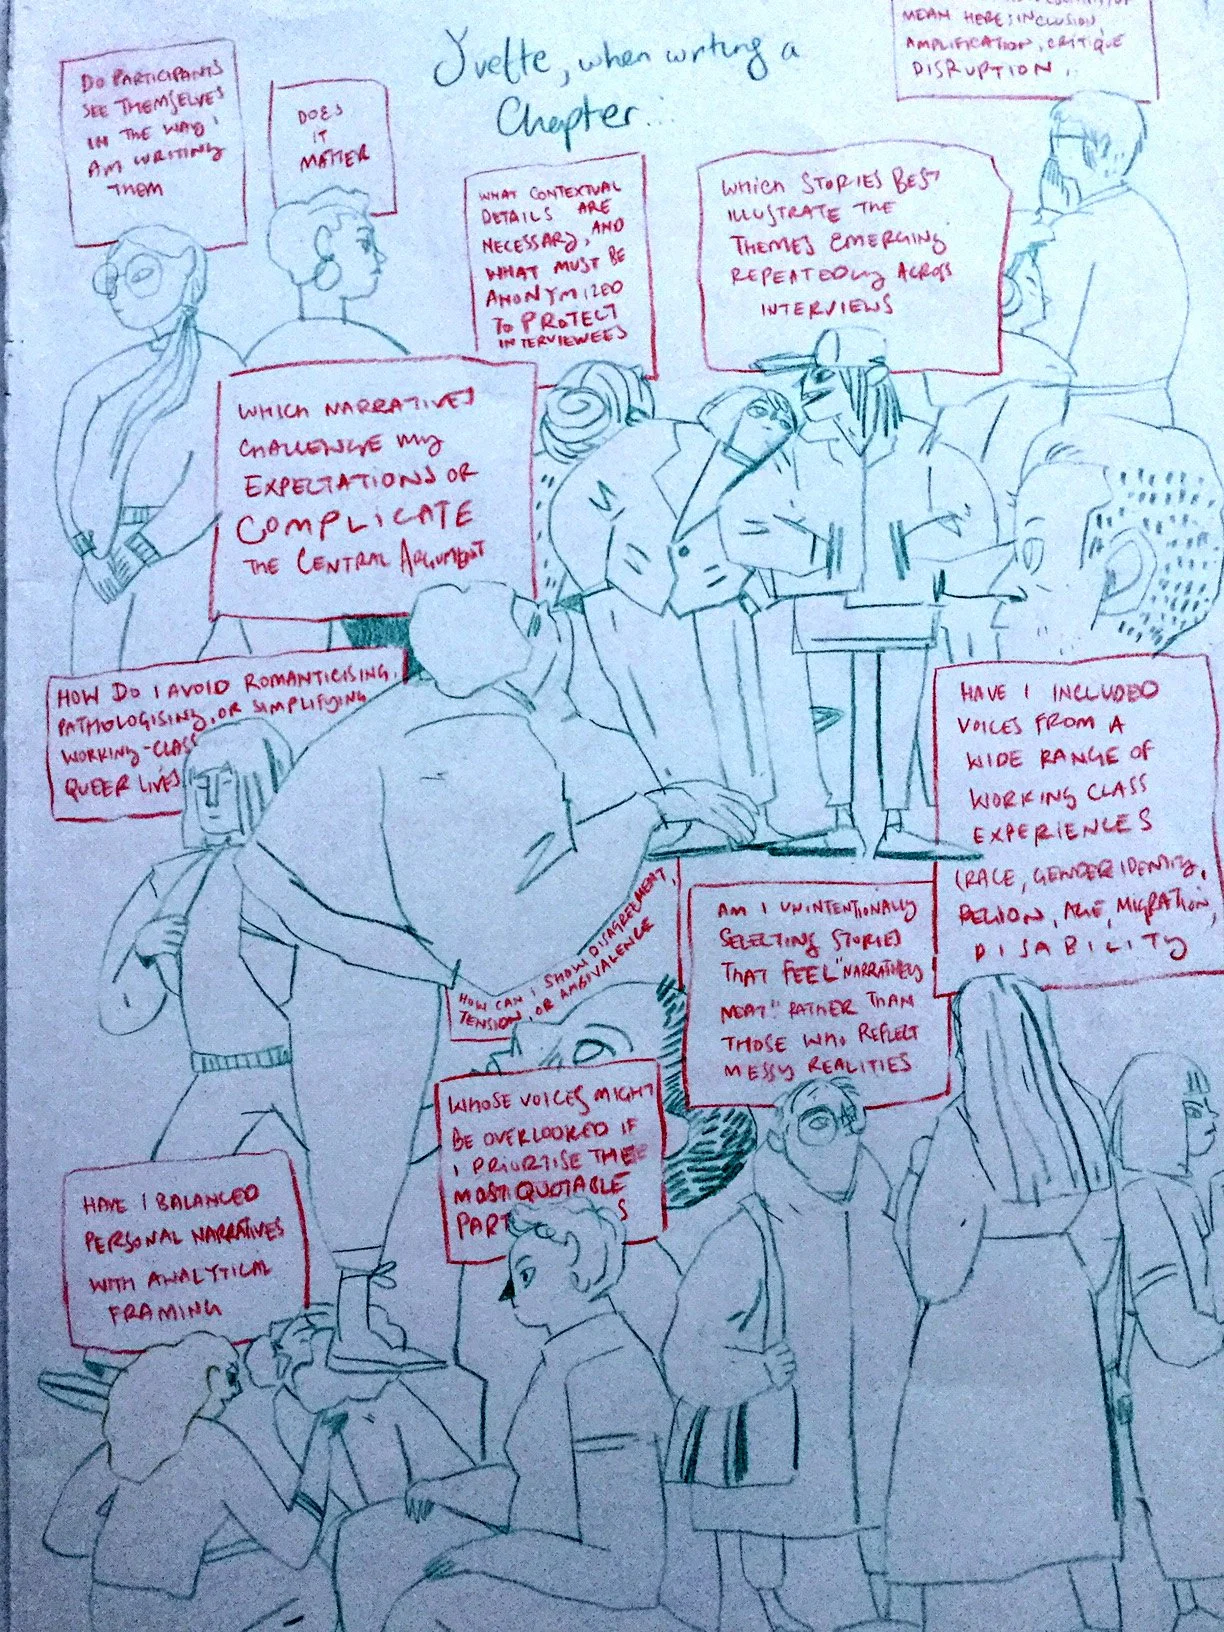 Yvette, when writing a
Chapter...
MEAN HERE: INCLUSION
AMPLIFICATION, CRITIQUE
DISRUPTION,
DO PARTICIPANTS
SEE THEMSELVES
IN THE WAY I
AM WRITING
THEM
DOES
IT
MATTER
WHAT CONTEXTUAL
DETAILS ARE
NECESSARY, AND
WHAT MUST BE
ANONYMIZED
TO PROTECT
INTERVIEWEES
WHICH STORIES BEST
ILLUSTRATE THE
THEMES EMERGING
REPEATEDLY ACROSS
INTERVIEWS
WHICH NARRATIVES
CHALLENGE MY
EXPECTATIONS OR
COMPLICATE
THE CENTRAL ARGUMENT
HOW DO I AVOID ROMANTICISING,
PATHOLOGISING, OR SIMPLIFYING
WORKING-CLASS
QUEER LIVES
HAVE I INCLUDED
VOICES FROM A
WIDE RANGE OF
WORKING CLASS
EXPERIENCES
(RACE, GENDER IDENTITY,
RELIGION, AGE, MIGRATION,
DISABILITY
HOW CAN I SHOW DISAGREEMENT,
TENSION, OR AMBIVALENCE
AM I UNINTENTIONALLY
SELECTING STORIES
THAT FEEL "NARRATIVELY
NEAT" RATHER THAN
THOSE WHO REFLECT
MESSY REALITIES
WHOSE VOICES MIGHT
BE OVERLOOKED IF
I PRIORTISE THE
MOST QUOTABLE
PART S
HAVE I BALANCED
PERSONAL NARRATIVES
WITH ANALYTICAL
FRAMING